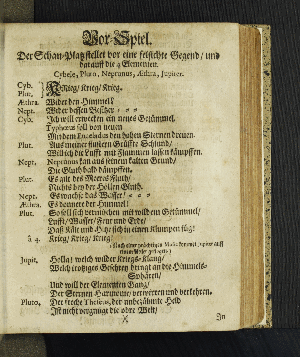 Vor-Spiel.
Der Schau-Platz stellet vor eine felsichte Gegend / und
darauff die 4 Elementen.
Cybele, Pluto, Neptunus, Æthra, Jupiter.
Cyb.
Plut. Krieg / Krieg / Krieg.
Æthra. Wider den Himmel!
Nept. Wider dessen
Cyb. Ich will erwecken ein neues Getümmel,
Typhoeus soll von neuen
Mit dem Enceladus den hohen Sternen dreuen.
Plut. Aus meiner finstern Grüffte Schlund /
Will ich die Lufft mit Flammen lassen kämpffen.
Nept. Neptunus kan aus seinem kalten Grund /
Die Gluth bald dämpffen.
Plut. Es gilt des Meeres Fluth /
Nichts bey der Höllen Gluth.
Nept. Es wachse das Wasser /
Æthra. Es donnere der Himmel!
Plut. So soll sich vermischen mit wilden Getümmel /
Lufft / Wasser / Feur und Erde
Daß Kält und Hitz sich in einen Klumpen füg!
à 4. Krieg / Krieg / Krieg /
Jupit. Holla! welch wilder Kriegs-Klang /
Welch trotziges Geschrey dringt an die Himmels-
Sphären /
Und will der Elementen Gang /
Der Sternen Harmonie / verwirren und verkehren.
Pluto, Der freche Theseus, der unbezähmte Held
Ist nicht vergnügt die obre Welt /
X In